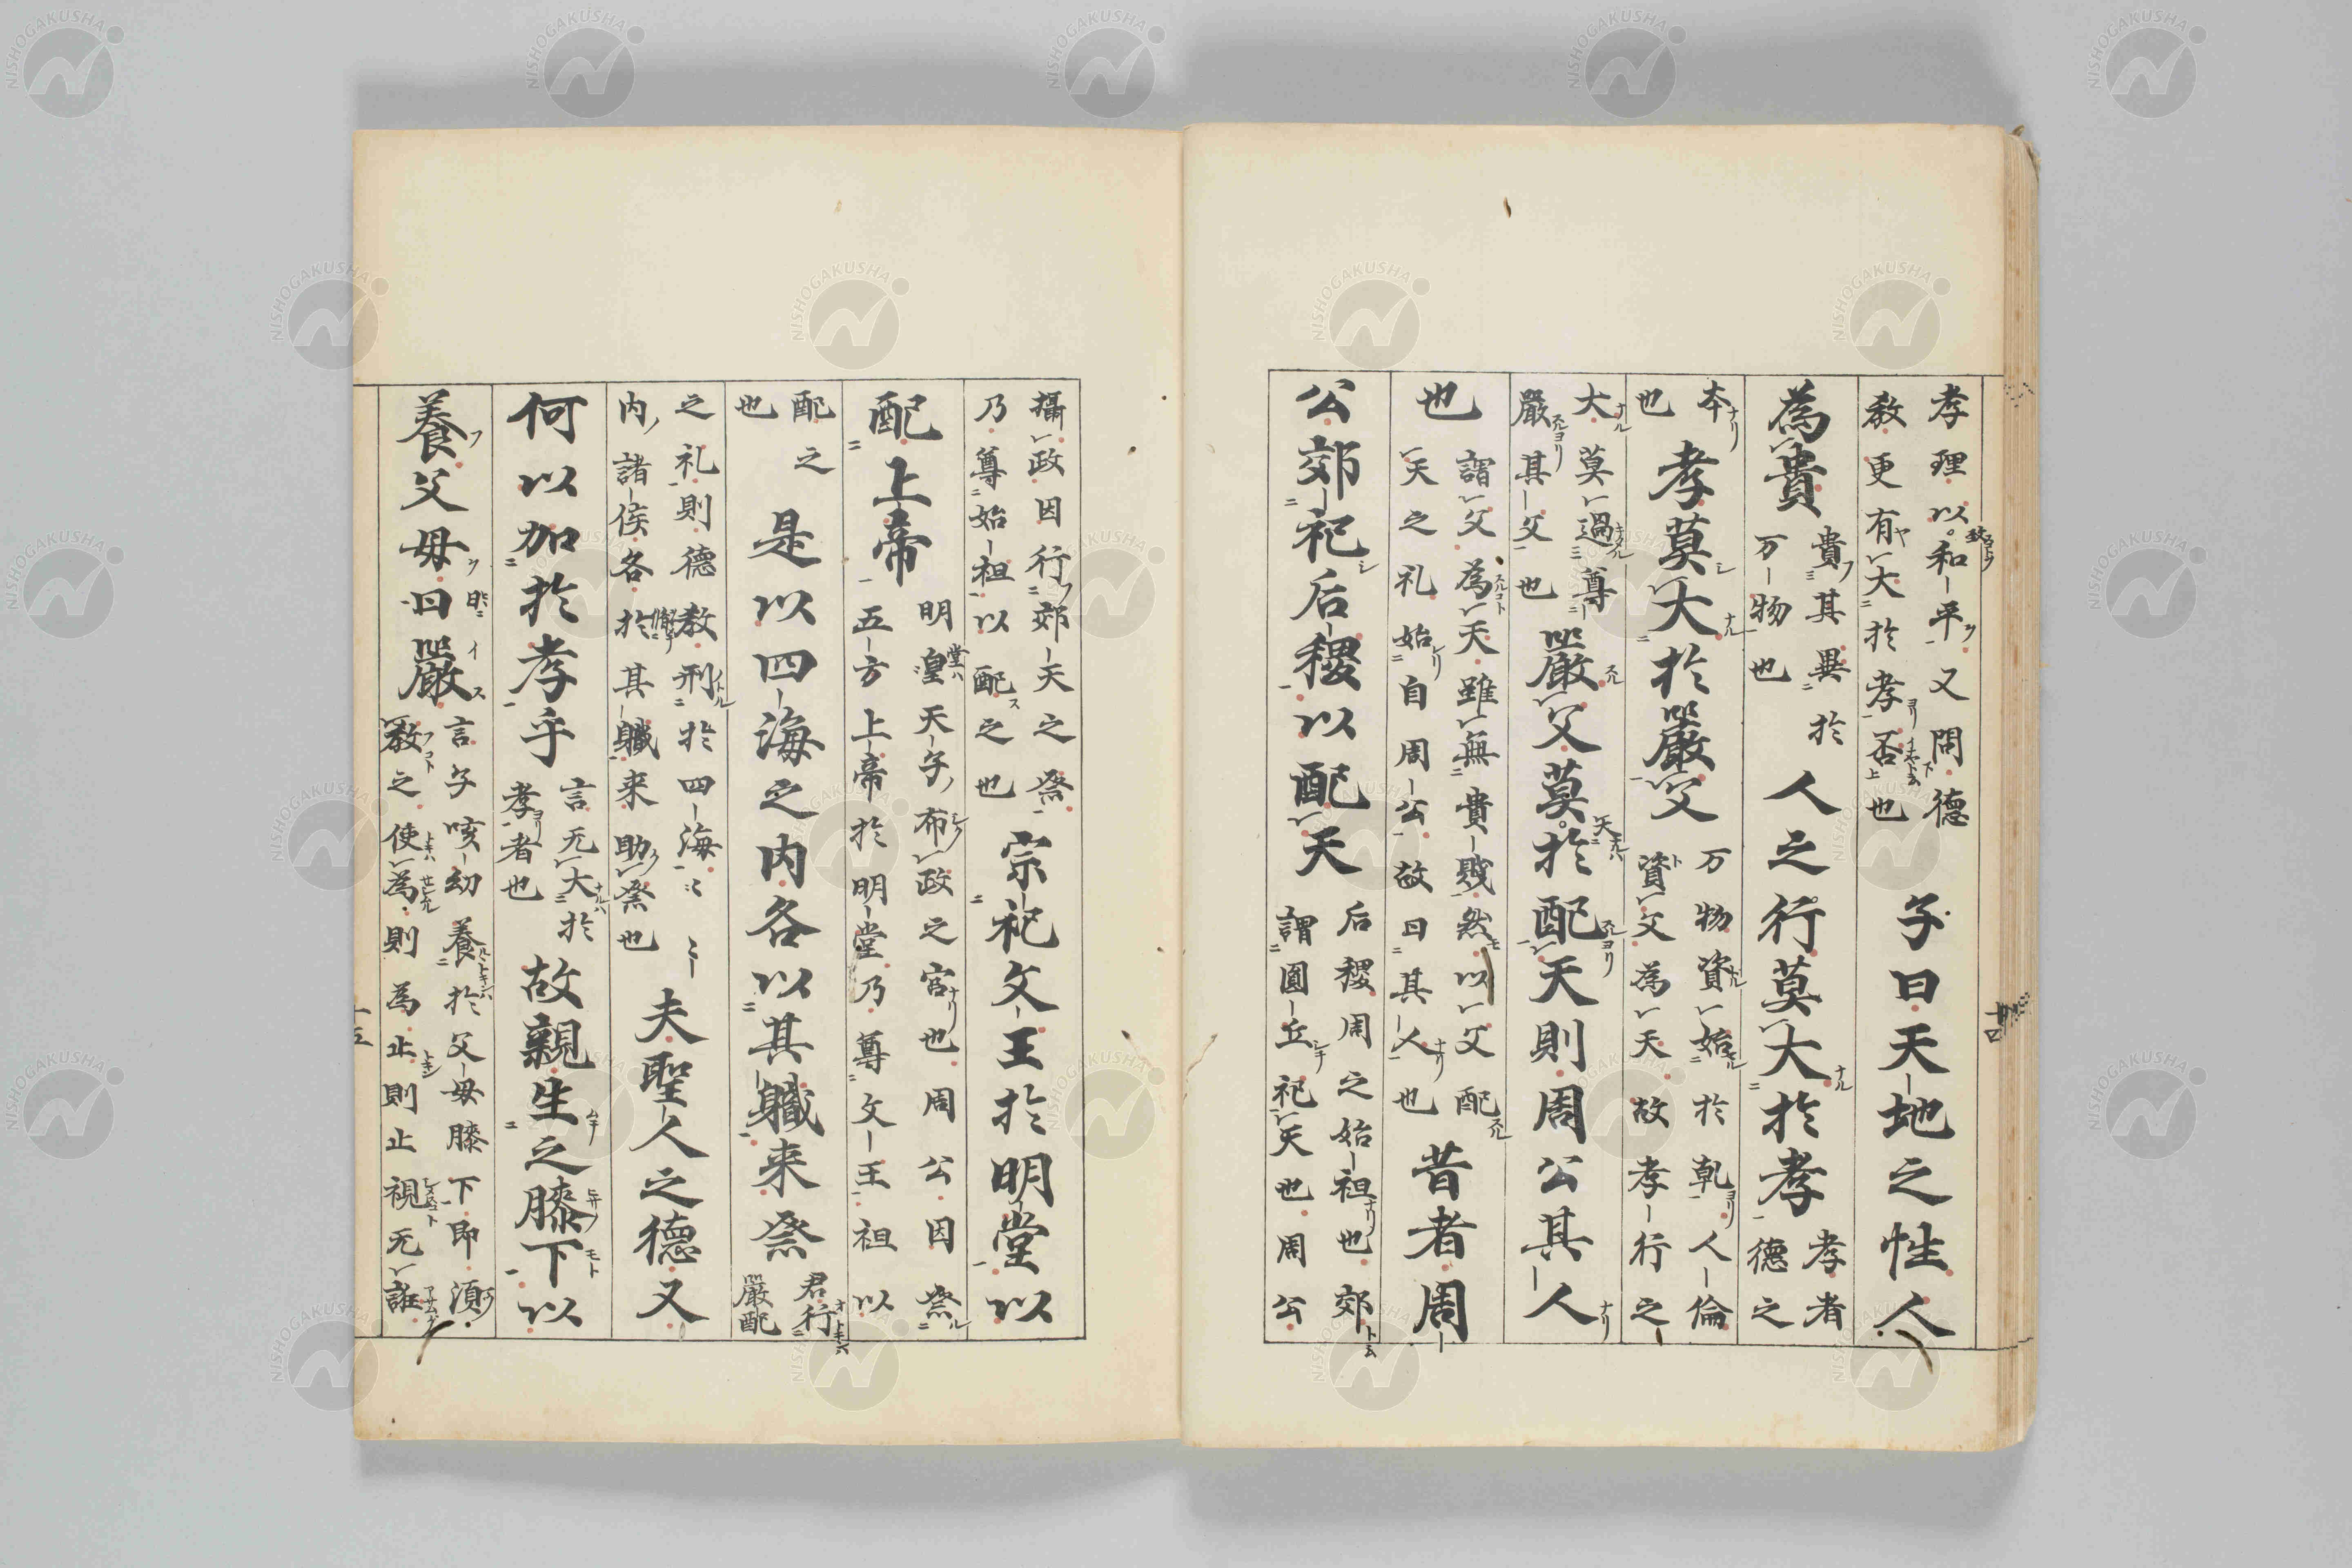 孝理以和平又問德
教更有大於孝否也
子曰天地之性人
為貴
貴其異於
万物也
人之行莫大於孝
孝者
德之
本
也
孝莫大於嚴父
万物資始於乾人倫
資父為天故孝行之
大莫過尊
嚴其父也
嚴父莫於配天則周公其人
也
謂父為天雖無貴賤然以父配
天之礼始自周公故曰其人也
昔者周
公郊祀后稷以配天
后稷周之始祖也郊
謂圓丘祀天也周公
攝政因行郊天之祭
乃尊始祖以配之也
宗祀文王於明堂以
配上帝
明堂天子布政之宮也周公因祭
五方上帝於明堂乃尊文王祖以
配之
也
是以四海之内各以其職来祭
君行
嚴配
之礼則德教刑於四海
内諸侯各於其職来助祭也
夫聖人之德又
何以加於孝乎
言无大於
孝者也
故親生之膝下以
養父母日嚴
言子咳幼養於父母膝下即須
教之使為則為止則止視无誑
NISHOGAKUSHA